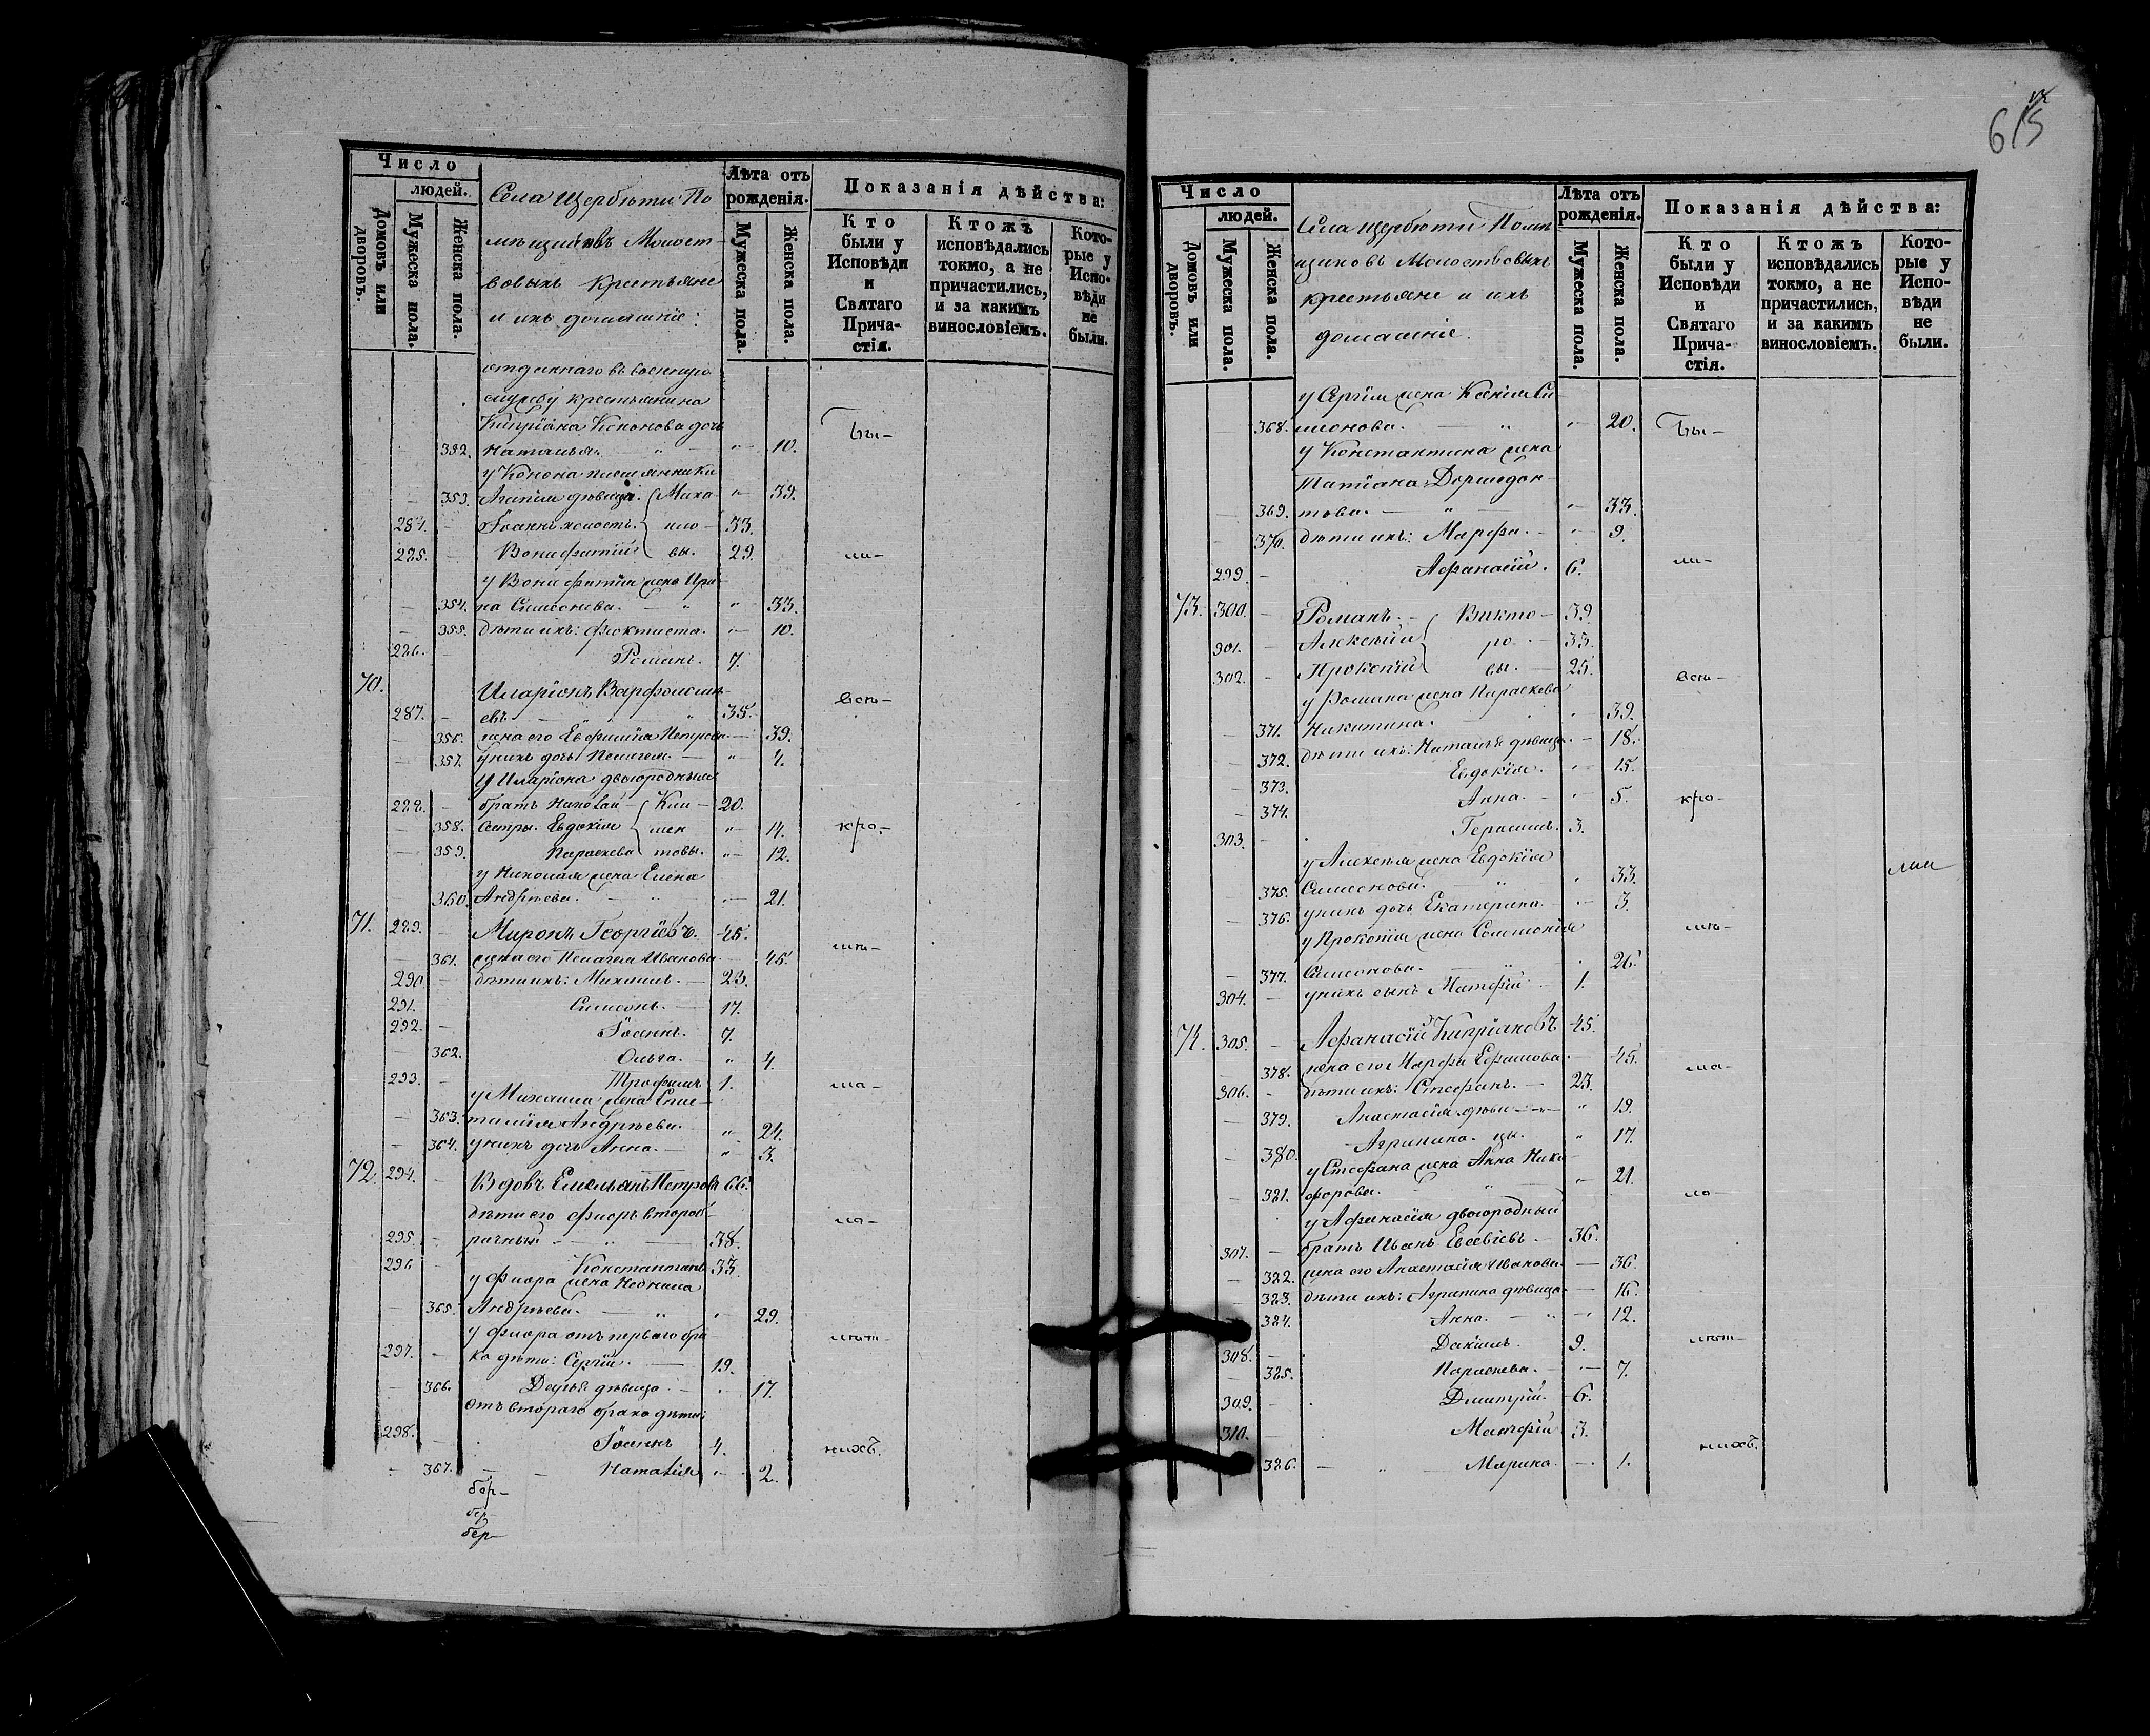 Число
людей.
Домовъ или дворовъ.
Мужеска пола.
Женска пола.
Села Щербѣти По
мѣщиковъ Молост-
вовыхъ крестьяне
и ихъ домашніе:
Лѣта отъ рожденія.
Мужеска пола.
Женска пола.
Показанія дѣйства:
Кто были у Исповѣди и Святаго Прича-стія.
Ктожъ исповѣдались токмо, а не причастились, и за какимъ винословіемъ.
Кото-рые у Испо-вѣди не были.
отданнаго въ военную
службу крестьянина
Кипріана Кононова дочь
Бы-
352. Наталья. 10.
у Конона племянники
353. Агапія дѣвица. Миха- 39.
284. Іоаннъ холостъ. ило- 33.
285. Вонифатій вы. 29. ли-
у Вонифатія жена Ири
354. на Симеонова. 33.
355. дѣти ихъ: Феоктиста. 10.
286. Романъ. 7.
70. Иларіонъ Варфоломѣ-
287. евъ 35. всѣ-
356. жена его Евфимія Петрова 39.
357. у нихъ дочь Пелагея. 4.
У Иларіона двоюродныя
288. братъ Николай Кли- 20.
358. Сестры. Евдокія мен 14. кро-
359. Параскева товы. 12.
у Николая жена Елена
360. Андрѣева. 21.
71. 289. Миронъ Георгіевъ. 45. мѣ-
361. жена его Пелагея Иванова 45.
290 дѣти ихъ: Михаилъ. 23.
291. Симеонъ. 17.
292. Іоаннъ. 7.
362. Ольга. 4.
293. Трофимъ 1. ма-
у Михаила жена Епис-
363. тимія Андрѣева. 24.
364. у нихъ дочь Анна. 3.
72. 294. Вдовъ Емельянъ Петровъ 66.
дѣти его Флоръ второб-
ло-
295. рачный 38.
296 Константинъ 33.
у Флора жена Неонила
365. Андрѣева. 29.
у Флора отъ перваго бра
лѣт-
297. ка дѣти: Сергій. 19.
366. Дарья дѣвица. 17.
Отъ втораго брака дѣти:
298. Іоаннъ 4. нихъ.
367. Наталія 2.
бер-
бер-
бер-
615
Число
людей.
Домовъ или дворовъ.
Мужеска пола.
Женска пола.
Села Щербѣти Помѣ
щиковъ Молоствовыхъ
крестьяне и ихъ
домашніе.
Лѣта отъ рожденія.
Мужеска пола.
Женска пола.
Показанія дѣйства:
Кто были у Исповѣди и Святаго Прича-стія.
Ктожъ исповѣдались токмо, а не причастились, и за какимъ винословіемъ.
Кото-рые у Испо-вѣди не были.
у Сергія жена Ксенія Си
368. меонова. 20. Бы-
у Константина жена
Татіана Дормидон-
369. това. 33.
370. дѣти ихъ: Марфа. 9.
299. Афанасій. 6. ли-
73. 300. Романъ. Викто- 39.
301. Алексѣй ро 33.
302. Прокопій вы. 25. всѣ-
у Романа жена Параскева
371. Никитина. 39.
372. дѣти ихъ: Наталья дѣвица. 18.
373. Евдокія. 15.
374. Анна. 5. кро-
303. Герасимъ. 3.
у Алексѣя жена Евдокія
375. Симеонова. 33. лли
376. у нихъ дочь Екатерина. 3.
у Прокопія жена Соломонія мѣ-
377. Симеонова. 26.
304. у нихъ сынъ Матфій 1.
74. 305. Афанасій Кипріановъ 45.
378. жена его Марфа Ефимова. 45. ма-
306. дѣти ихъ: Стефанъ. 23.
379. Анастасія дѣви- 19.
380. Агрипина. цы. 17.
у Стефана жена Анна Ники
381. форова. 21. ло-
у Афанасія двоюродный
307. братъ Иванъ Евсевіевъ. 36.
382. жена его Анастасія Иванова. 36.
383. дѣти ихъ: Агрипина дѣвица. 16.
384. Анна. 12.
308. Даніилъ. 9. лѣт-
385. Параскева. 7.
309. Дмитрій. 6.
310. Матфій 3. нихъ.
386. Марина. 1.